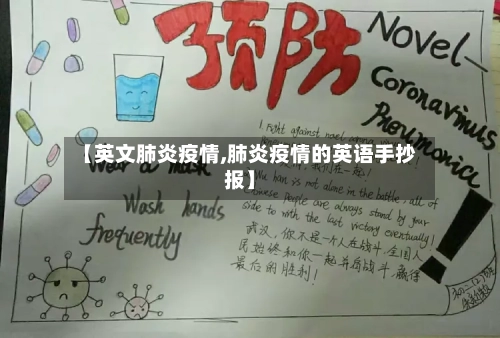 预防
Novel
Coronavirus
Pneumonia
【英文肺炎疫情,肺炎疫情的英语手抄
报】
1. Fight against novel
Wear a mask
Wu han is not alone in the battle, all of
people are always stand by your
side to with the last victory eventually!
Wash hands
frequently
武汉，你不是一个人在战斗，全国人
民始终和你一起并肩战斗，赢得
最后的胜利！